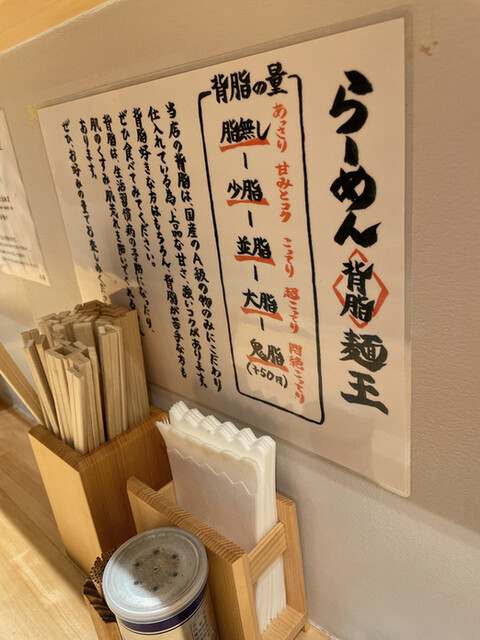 らーめん 背脂 麺王
背脂の量
あっさり
脂無し
甘みとコク
少脂
こってり
並脂
超こってり
大脂
悶絶こってり
鬼脂
(+50円)
当店の背脂は、国産のA級の物のみにこだわり
仕入れている為、上品な甘さ、強いコクがあります。
背脂好きな方はもちろん、背脂が苦手な方も
ぜひ食べてみてください。
背脂は、生活習慣病の予防になったり、
肌のくすみ、肌荒れを防いでくれる
あります。
ぜひ、お好みの量でお楽しみください